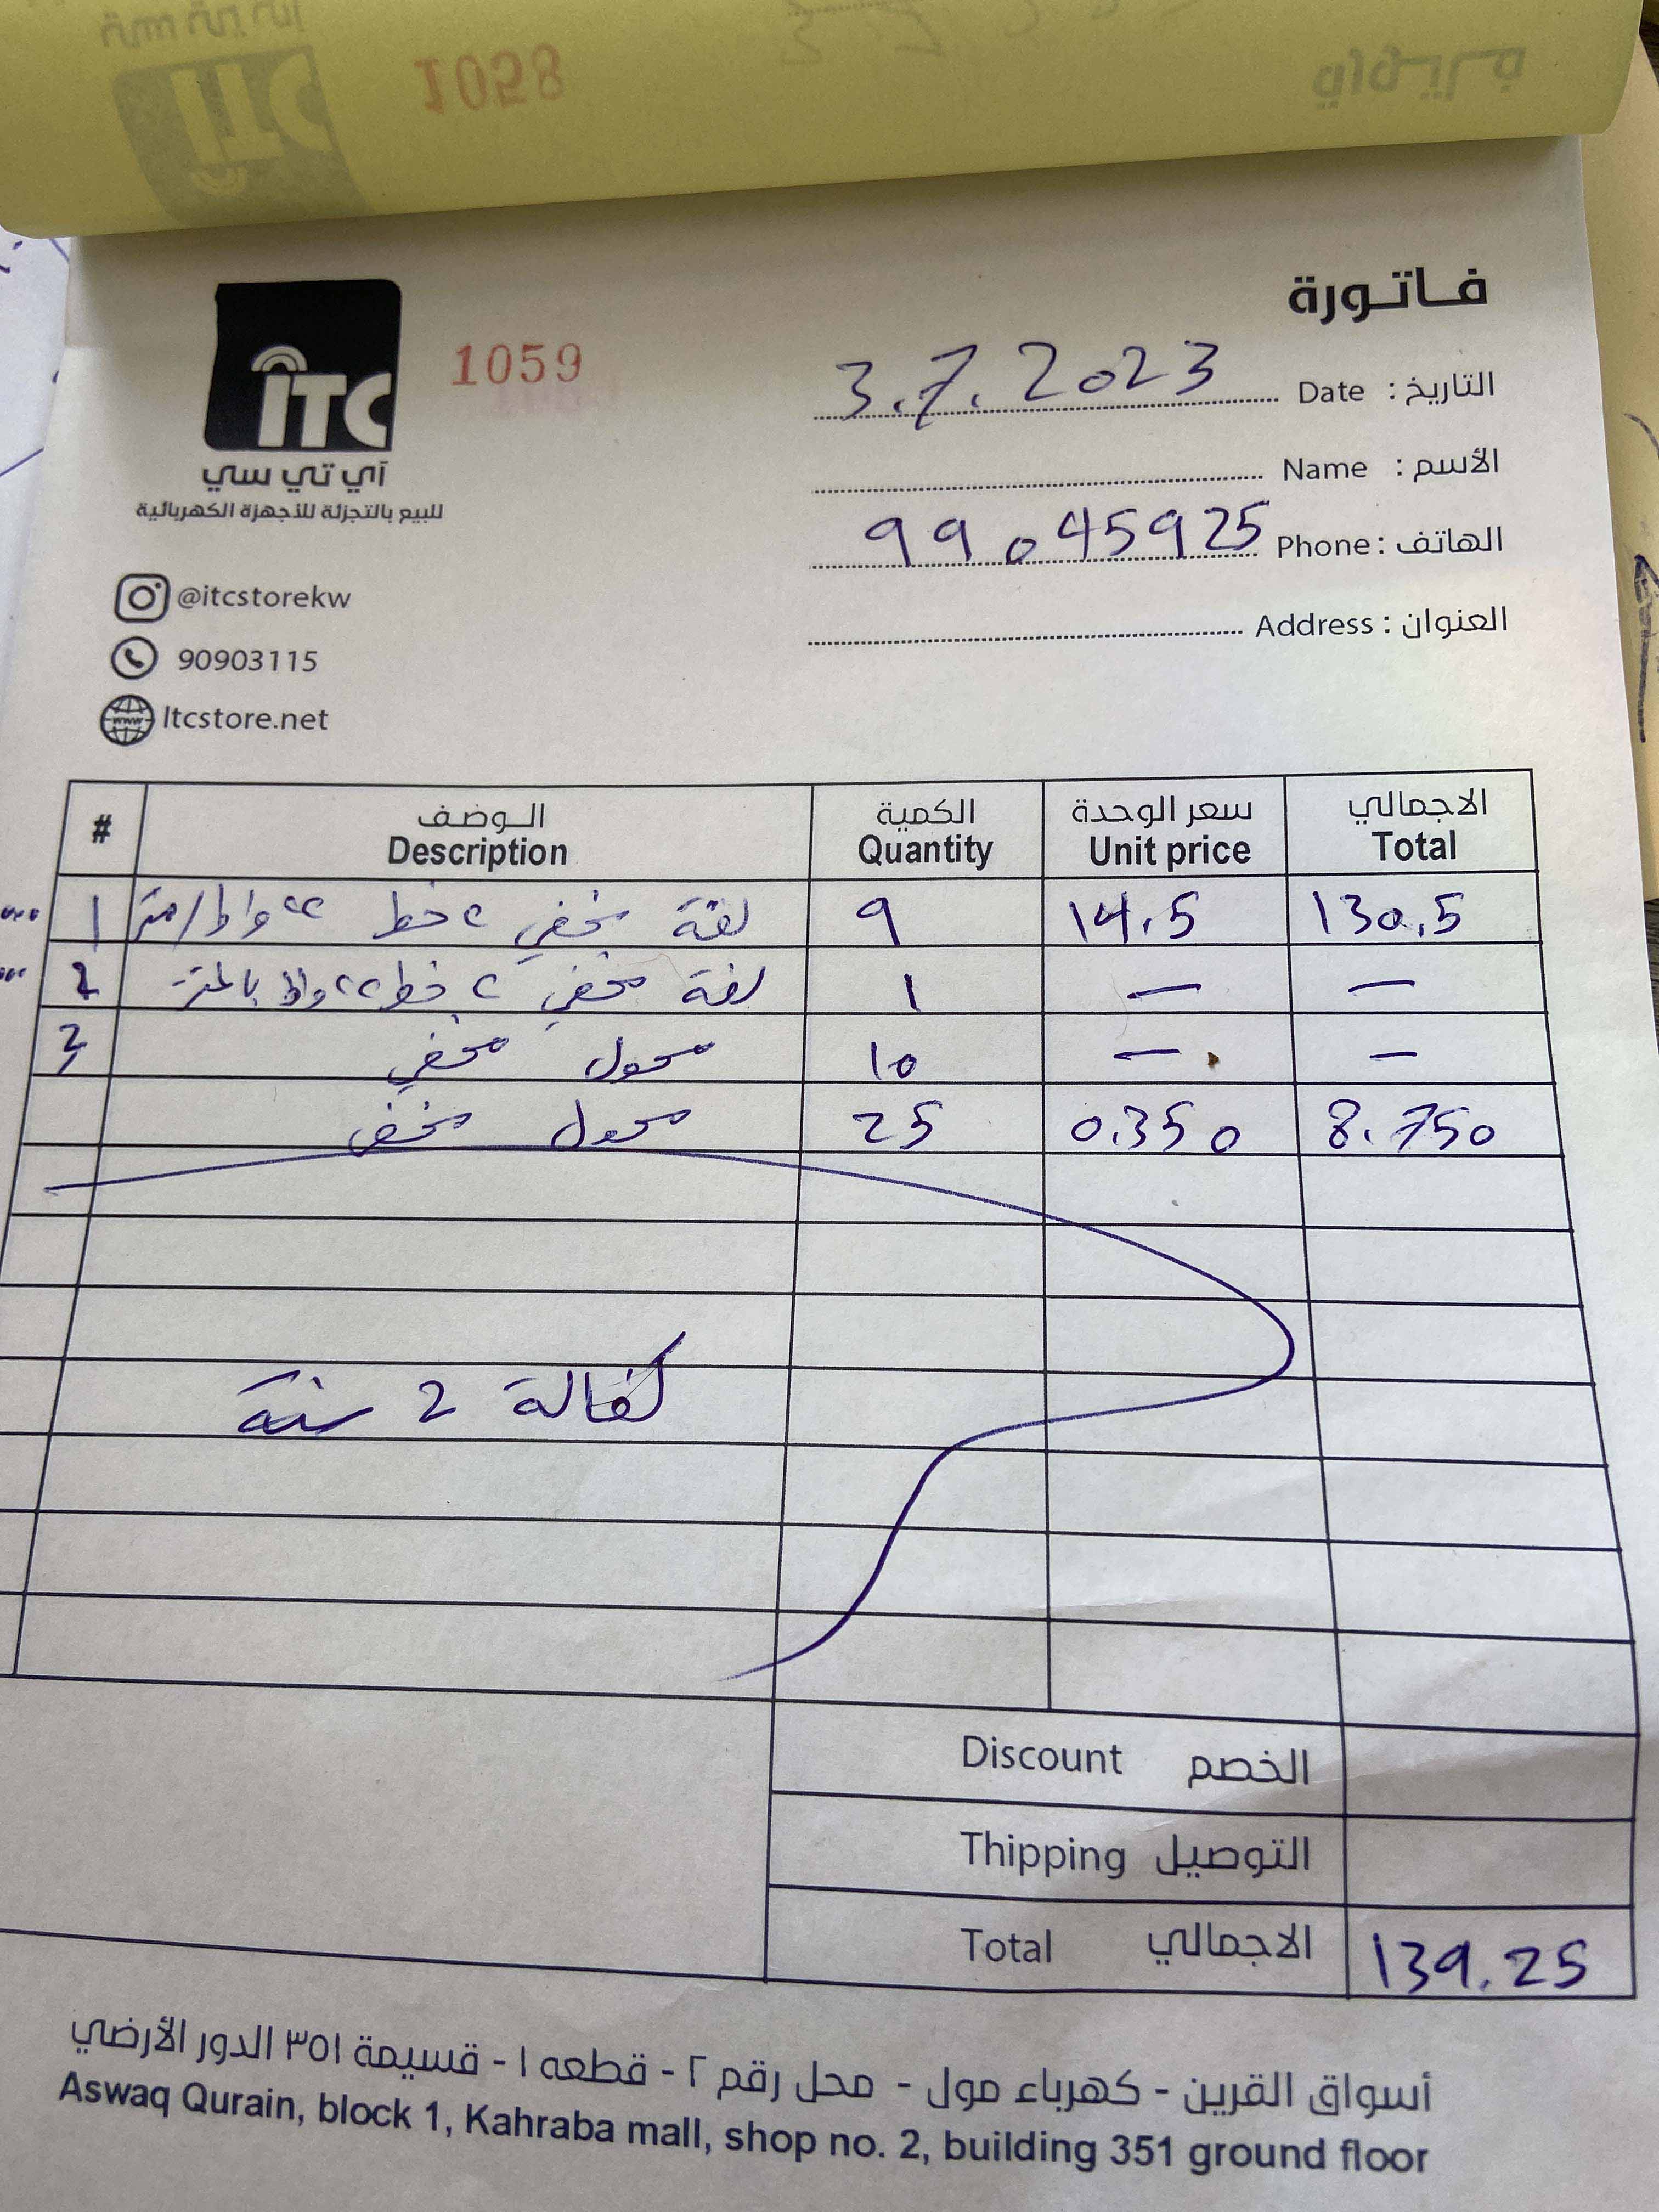 1058
فاتورة
ITC
1059
آي تي سي
للبيع بالتجزئة للأجهزة الكهربائية
التاريخ : Date 3.7.2023
الأسم : Name
الهاتف : Phone 99045925
العنوان : Address
@itcstorekw
90903115
www
Itcstore.net
# الـوضـف الكمية سعر الوحدة الاجمالي
Description Quantity Unit price Total
1 لفة مخفي ٢ خط ٢٢ واط/متر 9 14.5 130.5
2 لفة مخفي ٢ خط ٢٢ واط بالمتر 1 — —
3 محول مخفي 10 — —
محول مخفي 25 0.350 8.750
كفالة 2 سنة
Discount الخصم
Thipping التوصيل
Total الاجمالي 139.25
أسواق القرين - كهرباء مول - محل رقم ٢ - قطعه ١ - قسيمة ٣٥١ الدور الأرضي
Aswaq Qurain, block 1, Kahraba mall, shop no. 2, building 351 ground floor